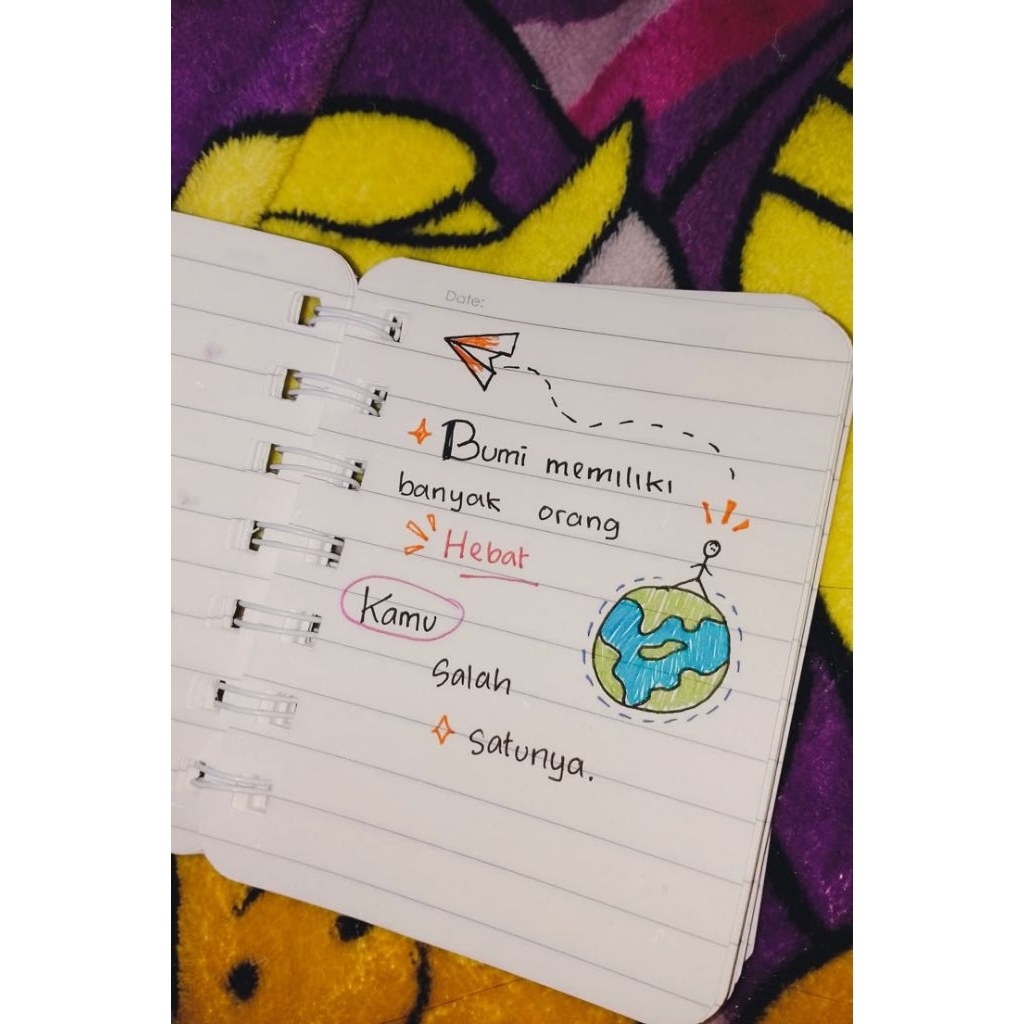 Date:
Bumi memiliki
banyak orang
Hebat
Kamu
Salah
satunya.